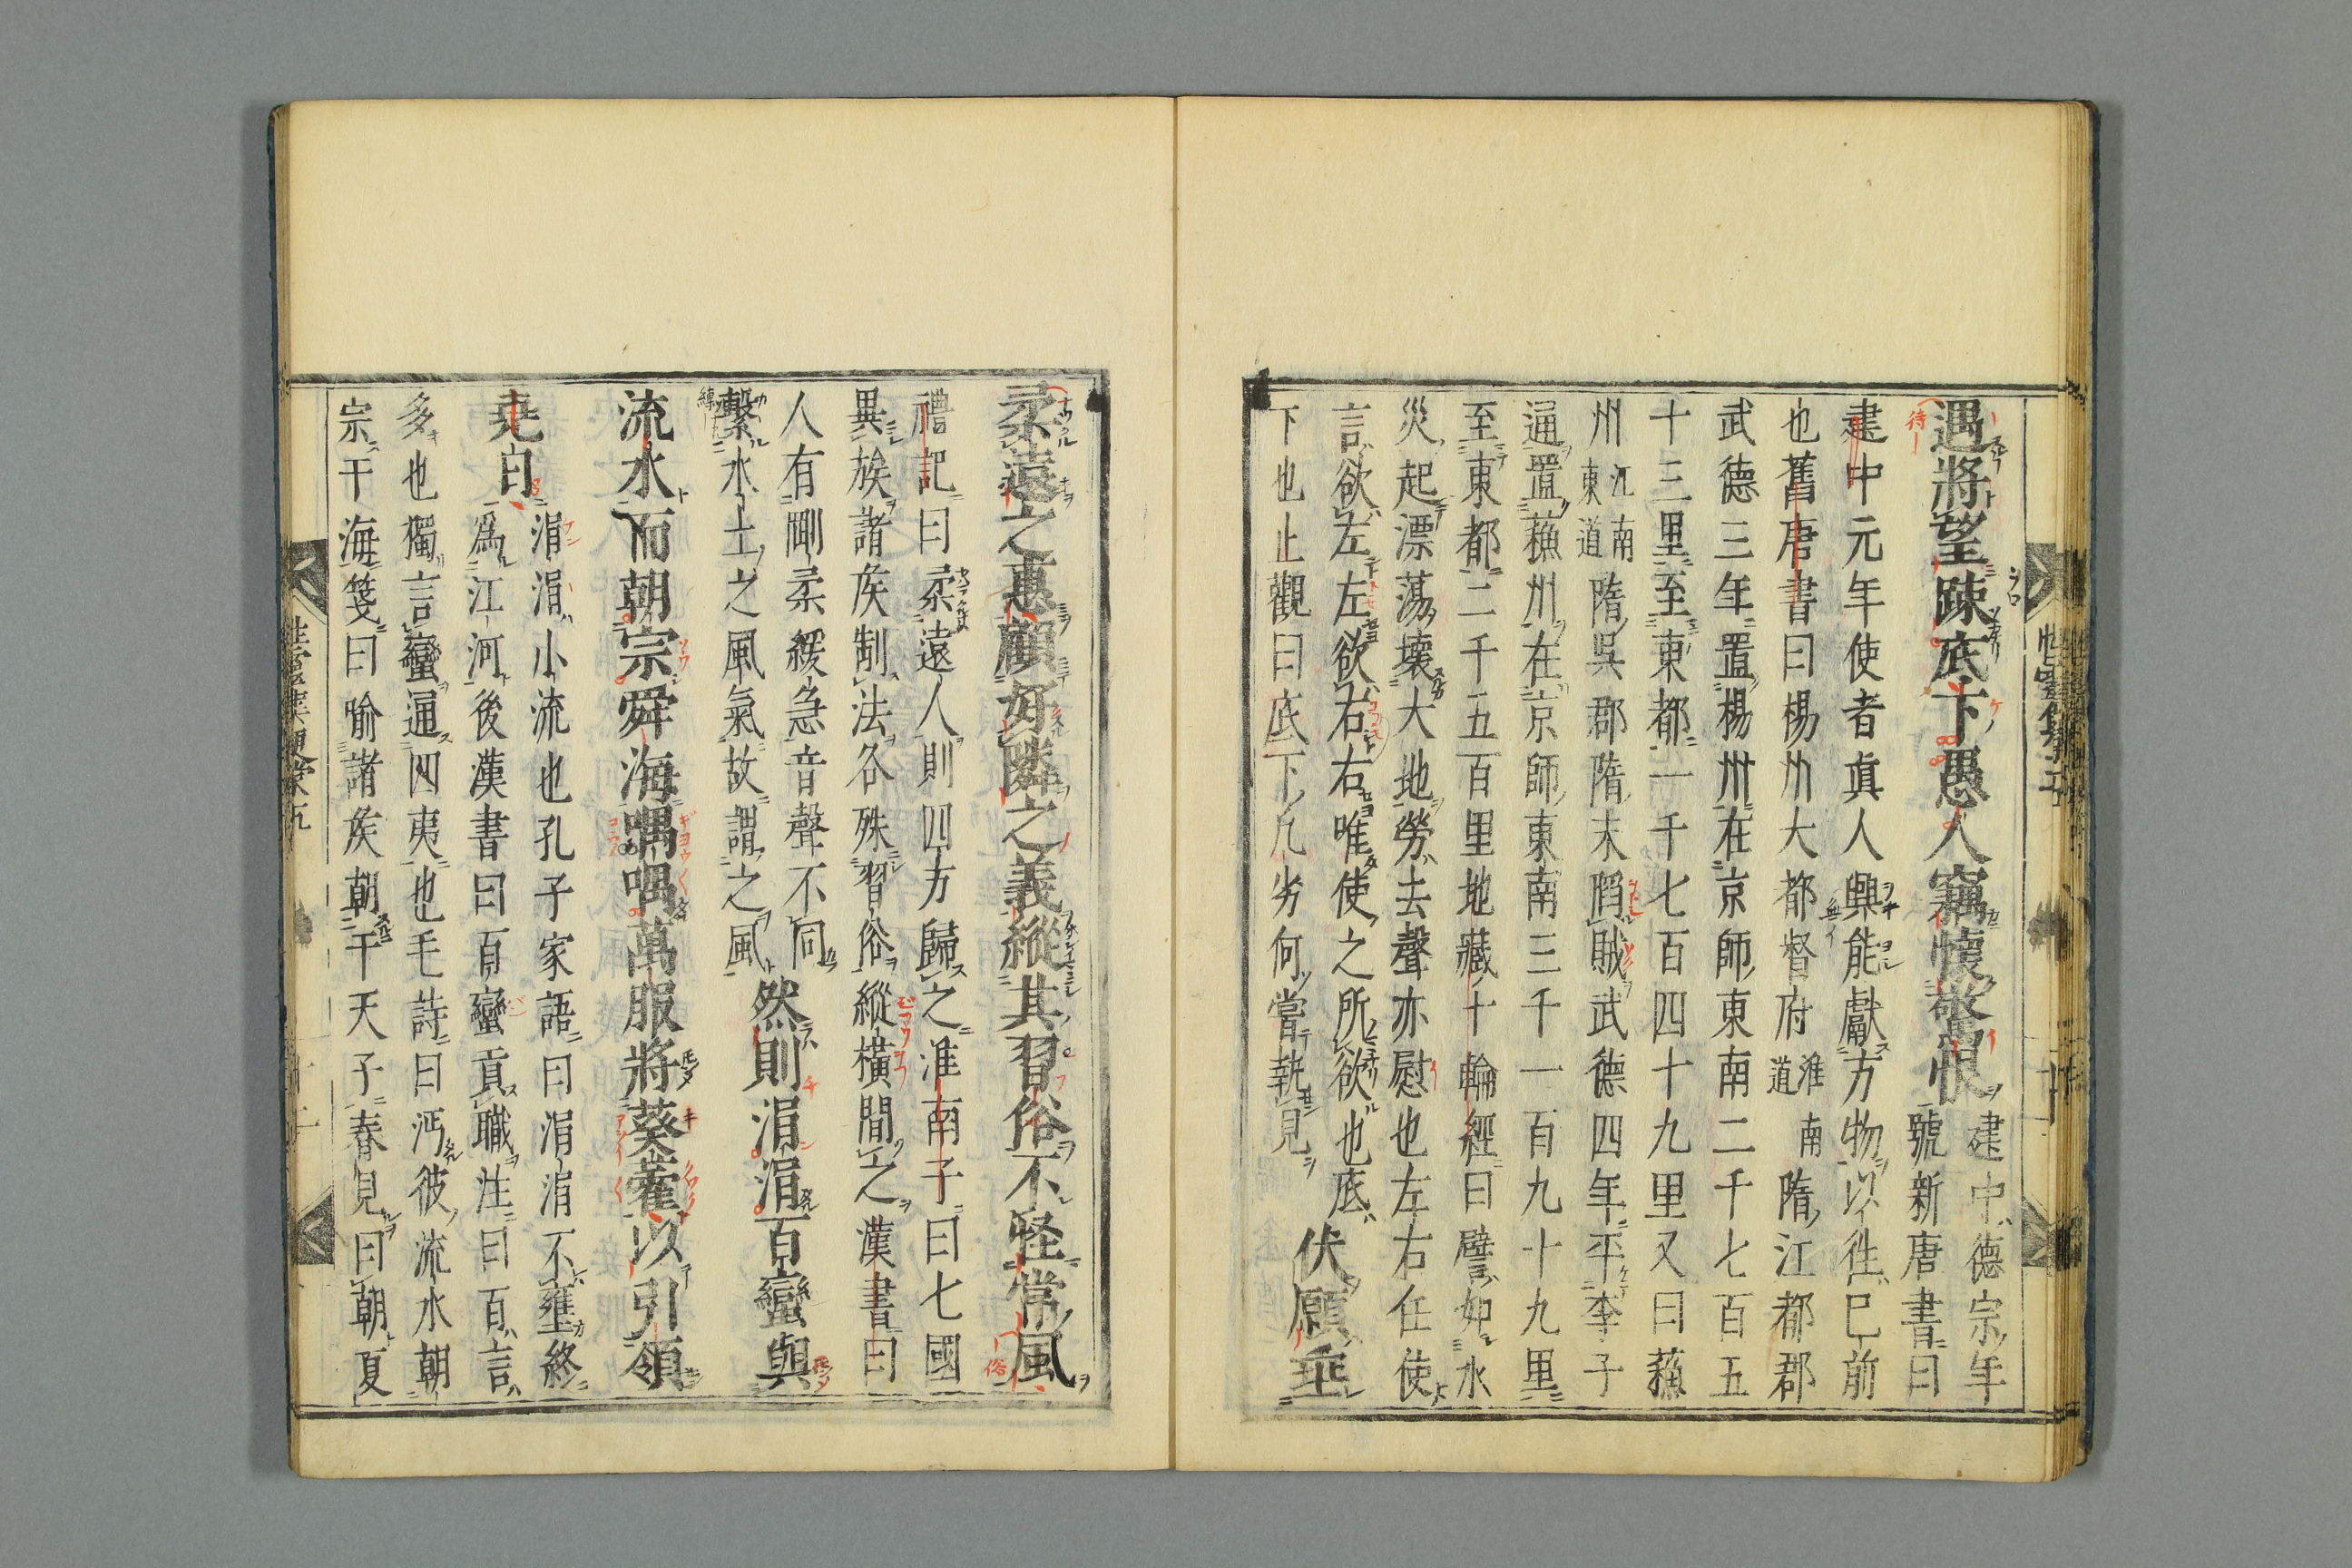 遇將望踈底下愚人竊懷慙恨
建中德宗年
號新唐書曰
建中元年使者眞人興能獻方物以徃已前
也舊唐書曰楊州大都督府淮南道隋江都郡
武德三年置楊州在京師東南二千七百五
十三里至東都一千七百四十九里又曰蘓
州江南東道隋吳郡隋末䧟賊武德四年平李子
通置蘓州在京師東南三千一百九十九里
至東都二千五百里地藏十輪經曰譬如水
災起漂蕩壊大地勞去聲亦慰也左右任使
言欲左左欲右右唯使之所欲也底
下也止觀曰底下凢劣何當執見
伏願垂
柔遠之惠顧好隣之義縱其習俗不怪常風
禮記曰柔遠人則四方歸之淮南子曰七國
異族諸侯制法各殊習俗縱橫間之漢書曰
人有剛柔緩急音聲不同
繫水土之風氣故謂之風
然則涓涓百蠻與
流水而朝宗舜海喁喁萬服將葵藿以引領
堯日
涓涓小流也孔子家語曰涓涓不壅終
爲江河後漢書曰百蠻貢職注曰百言
多也獨言蠻通四夷也毛詩曰沔彼流水朝
宗于海箋曰喻諸侯朝于天子春見曰朝夏